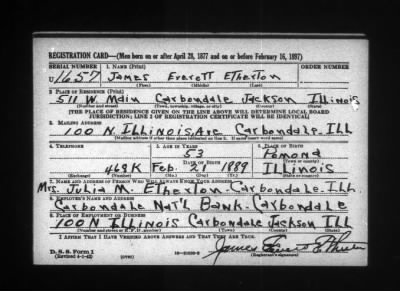 REGISTRATION CARD—(Men born on or after April 28, 1877 and on or before February 16, 1897)
SERIAL NUMBER 1. NAME (Print) ORDER NUMBER
U 1657 James Everett Etherton
(First) (Middle) (Last)
2. PLACE OF RESIDENCE (Print)
511 W. Main Carbondale Jackson Illinois
(Number and street) (Town, township, village, or city) (County) (State)
[THE PLACE OF RESIDENCE GIVEN ON THE LINE ABOVE WILL DETERMINE LOCAL BOARD
JURISDICTION; LINE 2 OF REGISTRATION CERTIFICATE WILL BE IDENTICAL]
3. MAILING ADDRESS
100 N. Illinois Ave Carbondale, Ill
(Mailing address if other than place indicated on line 2. If same insert word same)
4. TELEPHONE 5. AGE IN YEARS 6. PLACE OF BIRTH
53 Pomona
DATE OF BIRTH (Town or county)
469K Feb. 21 1889 Illinois
(Exchange) (Number) (Mo.) (Day) (Yr.) (State or country)
7. NAME AND ADDRESS OF PERSON WHO WILL ALWAYS KNOW YOUR ADDRESS
Mrs. Julia M. Etherton-Carbondale-Ill.
8. EMPLOYER'S NAME AND ADDRESS
Carbondale Nat'l Bank-Carbondale
9. PLACE OF EMPLOYMENT OR BUSINESS
100 N Illinois Carbondale Jackson Ill
(Number and street or R. F. D. number) (Town) (County) (State)
I AFFIRM THAT I HAVE VERIFIED ABOVE ANSWERS AND THAT THEY ARE TRUE.
James Everett Etherton
D. S. S. Form 1
(Revised 4-1-42) (over) (Registrant's signature)